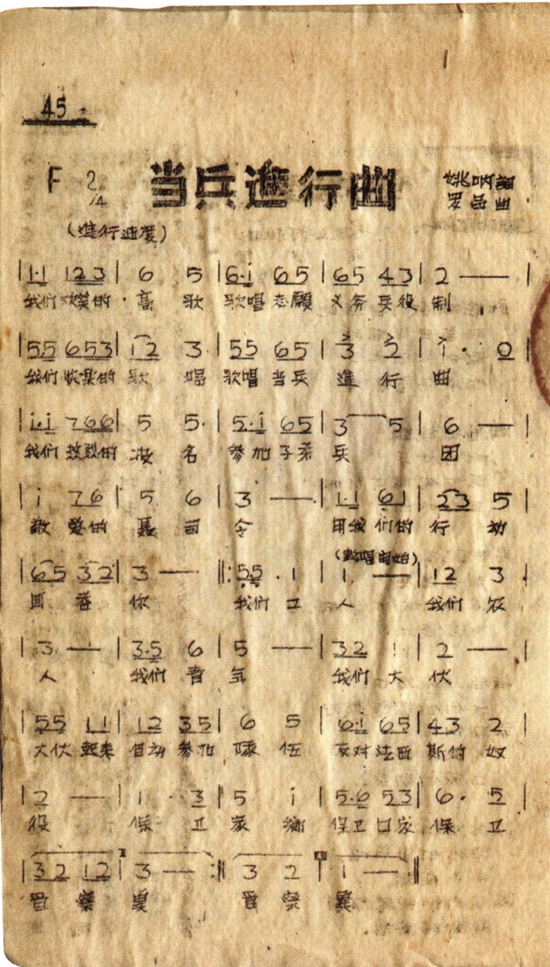 45
F 2/4 当兵進行曲 姚 詞
曲
(進行速度)
|1·1 123|6 5|6·1 65|65 43|2 —|
我们 的 高 歌 歌唱志願 义务兵役 制
|55 653|12 3·|55 65|3 2|1· 0|
我们快楽的歌 唱 歌唱当兵 進 行 曲
|1·1 766|5 5·|5·1 65|3 5|6 —|
我们 烈的 报 名 参加子弟 兵 团
|1 76|5 6|3 —|1·1 61|23 5|
敬 爱的 聂 司 令 用我们的 行 动
(歌唱開始)
|65 32|3 —|:55·1|1 —|12 3·|
回答 你 我们工 人 我们农
|3 —|3·5 6|5 —|32 1|2 —|
人 我们青 年 我们大 伙
|55 11|12 35|6 5|61 65|43 2|
大伙起来 自动参加 隊 伍 反对法西 斯的 奴
|2 —|1· 3|5 1|5·6 53|6· 5|
役 保 卫 家 鄉 保卫 家 保 卫
|32 12|3 —:|3 2|1 —|
晋察 冀 晋 察 冀